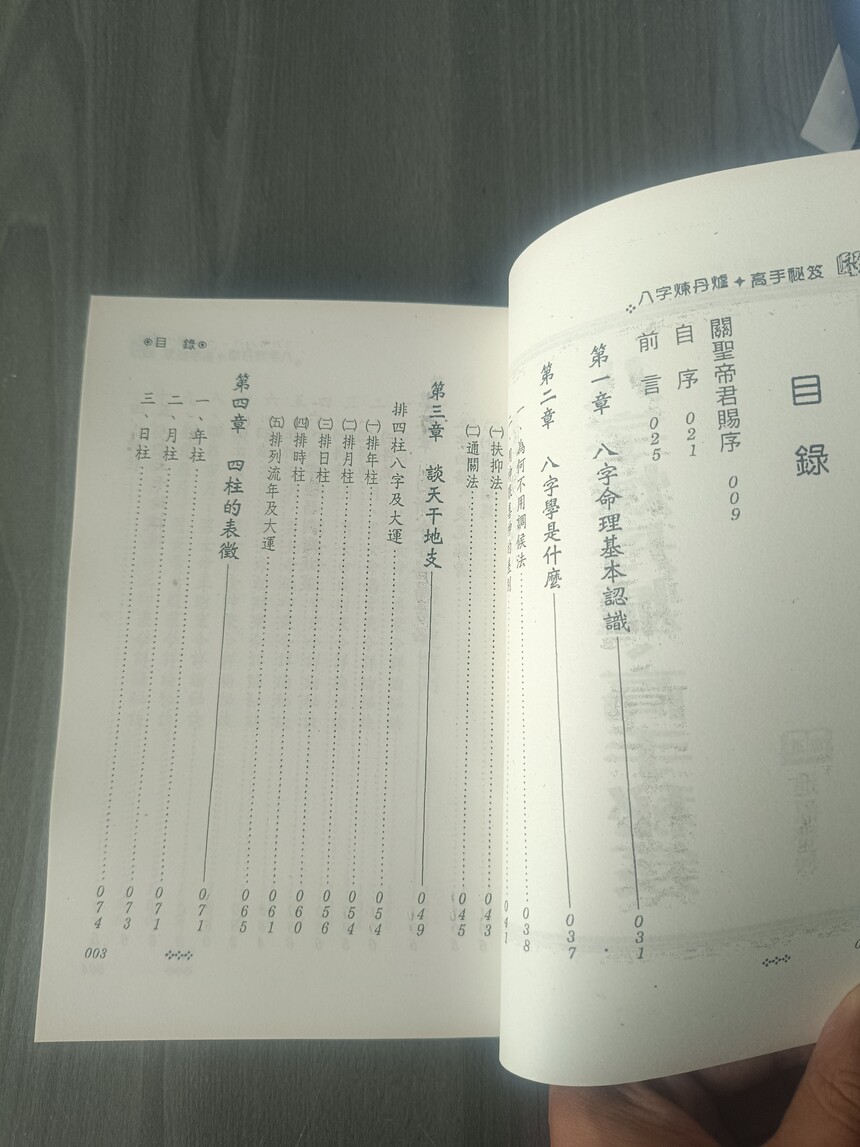 八字煉丹爐✦高手秘笈
目錄
關聖帝君賜序 009
自序 021
前言 025
第一章 八字命理基本認識 031
第二章 八字學是什麼 037
一、為何不用調候法 038
041
㈠扶抑法 043
㈡通關法 045
第三章 談天干地支 049
排四柱八字及大運 054
㈠排年柱 054
㈡排月柱 056
㈢排日柱 060
㈣排時柱 061
㈤排列流年及大運 065
第四章 四柱的表徵 071
一、年柱 071
二、月柱 073
三、日柱 074
目錄
003